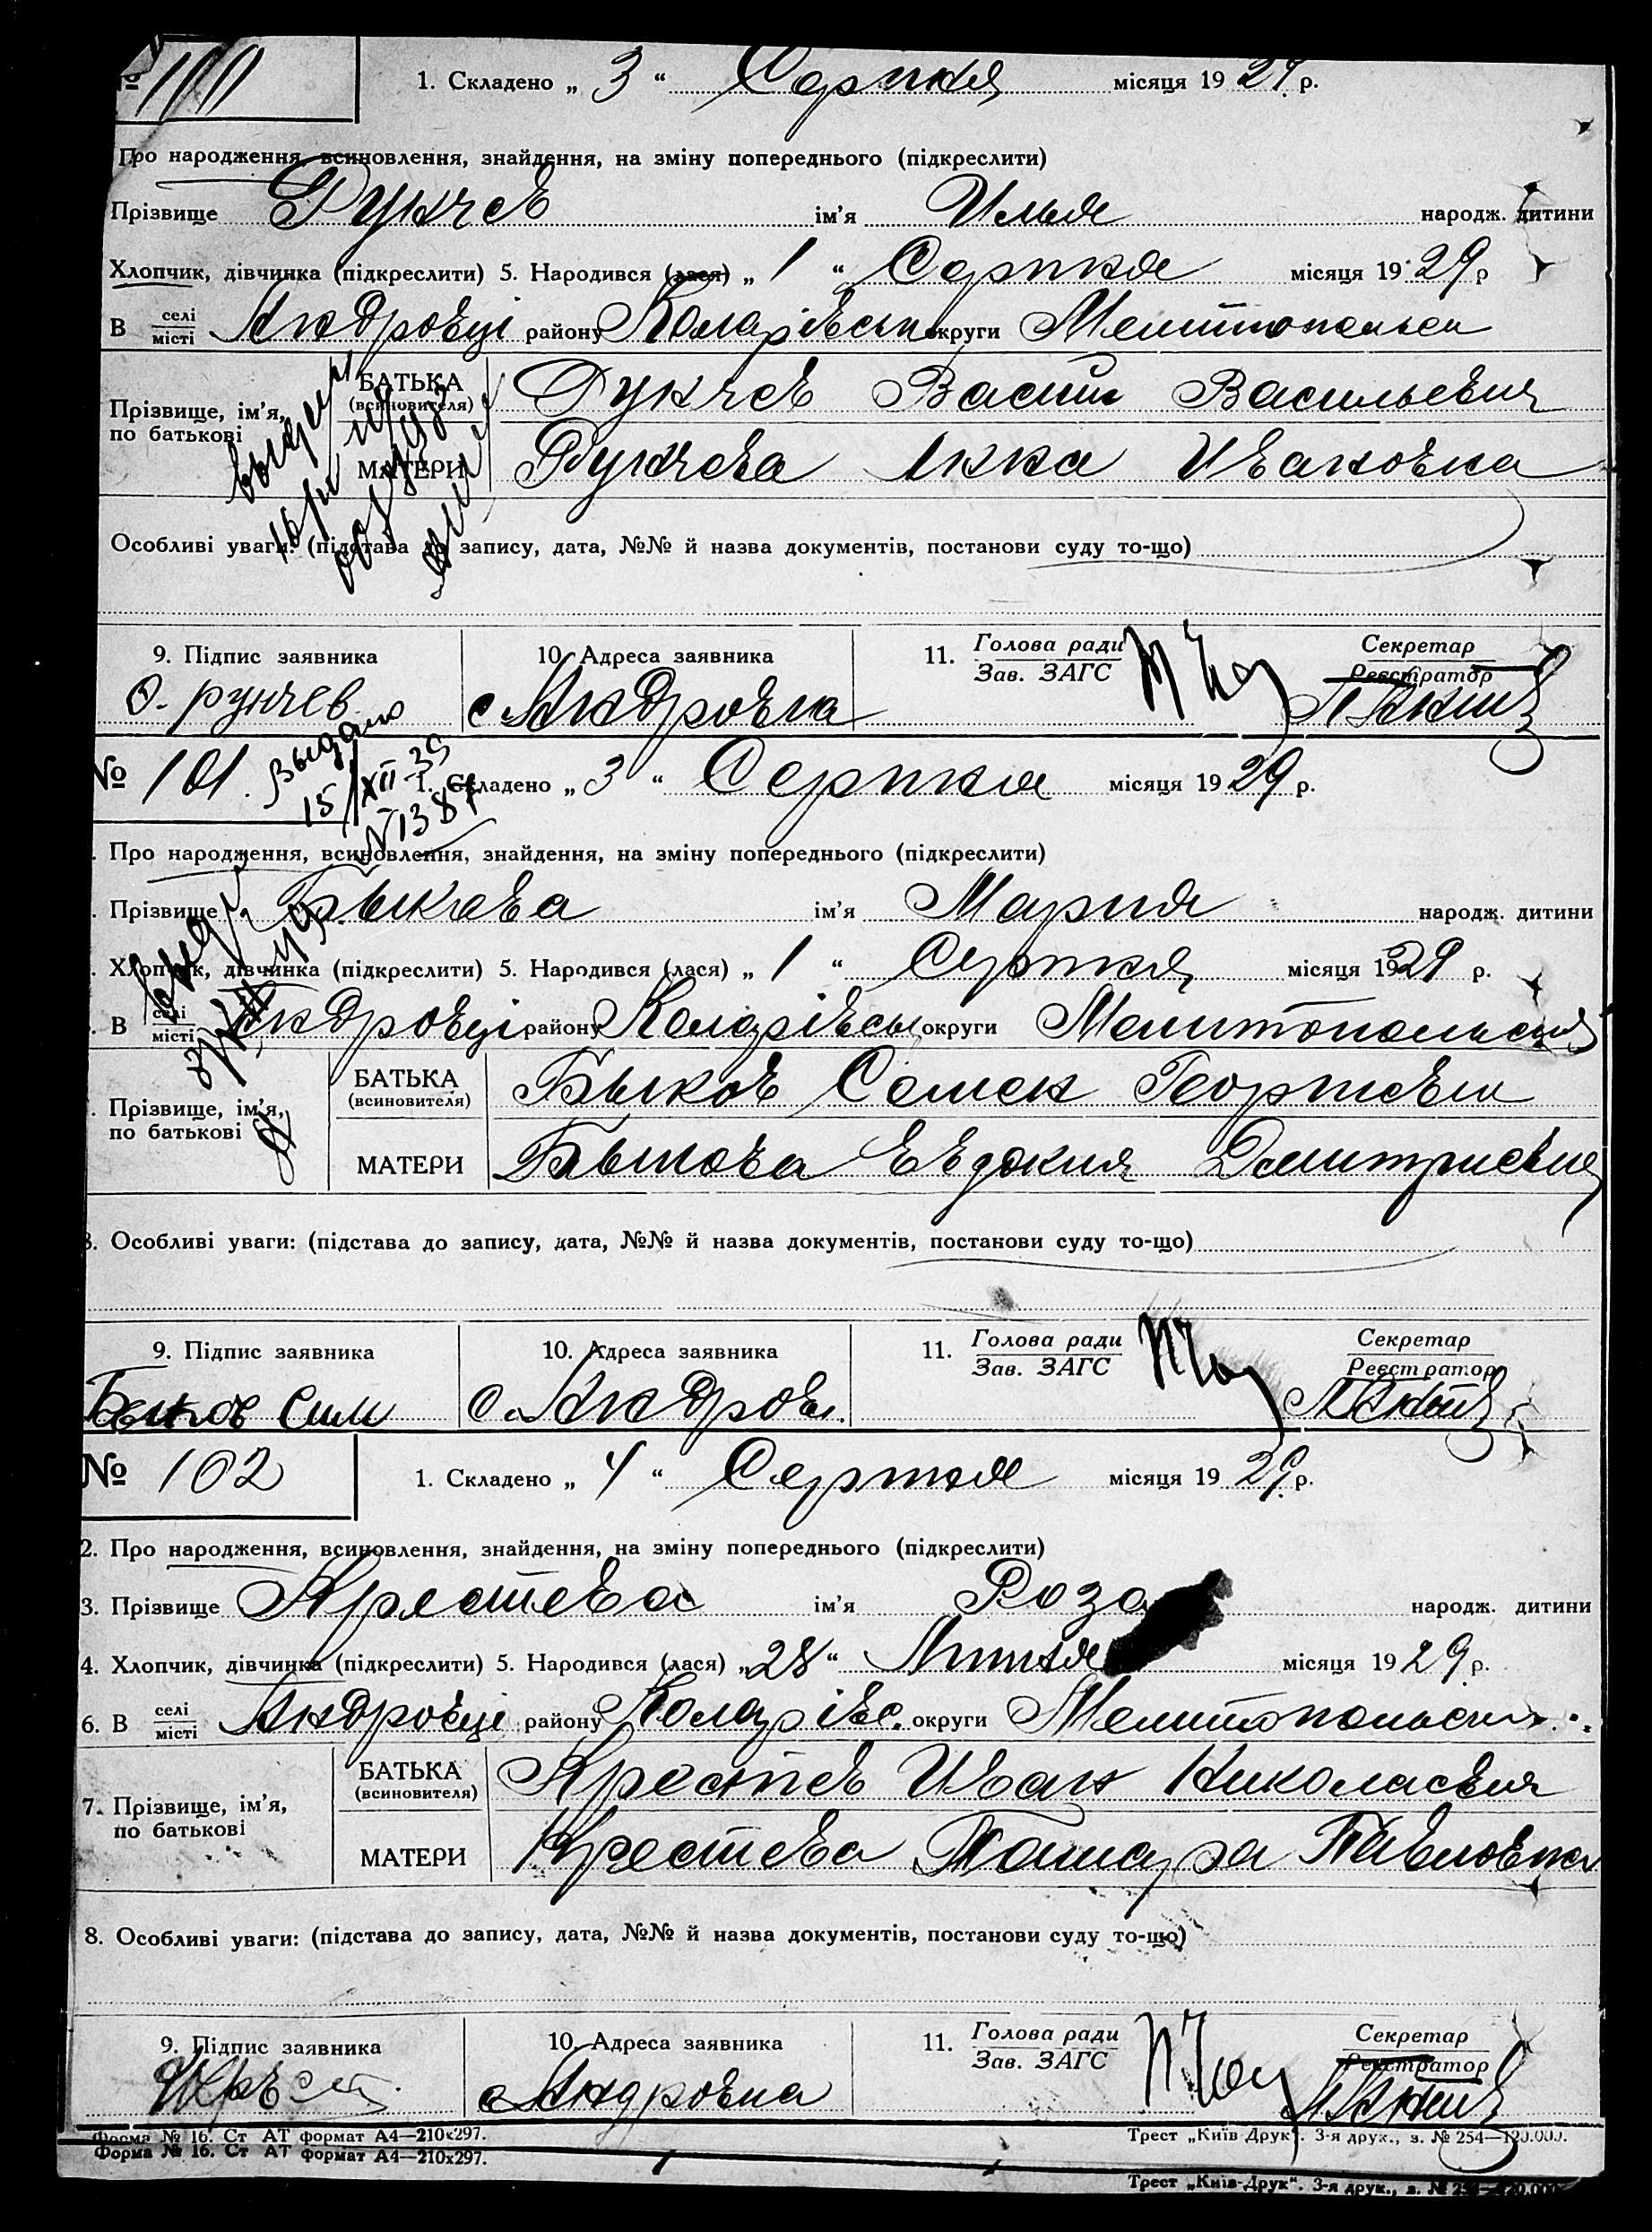 № 100
1. Складено „ 3 “ Серпня місяця 19 29 р.
Про народження, всиновлення, знайдення, на зміну попереднього (підкреслити)
Прізвище Рунчев ім'я Илья народж. дитини
Хлопчик, дівчинка (підкреслити) 5. Народився (лася) „ 1 “ Серпня місяця 19 29 р
В селі місті Андровці району Коларівськ округи Мелитопольск
Прізвище, ім'я, по батькові
БАТЬКА (всиновителя) Рунчев Васил Васильевич
МАТЕРИ Рунчева Анна Ивановна
Особливі уваги: (підстава до запису, дата, №№ й назва документів, постанови суду то-що)
9. Підпис заявника 10. Адреса заявника 11. Голова ради Зав. ЗАГС Секретар Реєстратор
рунчев с Андровка
№ 101. Выдано 15/XII-39 N1387
1. Складено „ 3 “ Серпня місяця 19 29 р.
Про народження, всиновлення, знайдення, на зміну попереднього (підкреслити)
Прізвище Быкова ім'я Мария народж. дитини
Хлопчик, дівчинка (підкреслити) 5. Народився (лася) „ 1 “ Серпня місяця 19 29 р.
В селі місті Андровці району Коларівськ округи Мелитопольския
Прізвище, ім'я, по батькові
БАТЬКА (всиновителя) Быков Семен Георгиеви
МАТЕРИ Быкова Евдокия Дмитриевна
8. Особливі уваги: (підстава до запису, дата, №№ й назва документів, постанови суду то-що)
9. Підпис заявника 10. Адреса заявника 11. Голова ради Зав. ЗАГС Секретар Реєстратор
Быков Сим с. Андровк.
№ 102
1. Складено „ 4 “ Серпня місяця 19 29 р.
2. Про народження, всиновлення, знайдення, на зміну попереднього (підкреслити)
3. Прізвище Крестева ім'я Роза народж. дитини
4. Хлопчик, дівчинка (підкреслити) 5. Народився (лася) „ 28 “ Липня місяця 19 29 р.
6. В селі місті Андровці району Коларівс. округи Мелитопольск
7. Прізвище, ім'я, по батькові
БАТЬКА (всиновителя) Крестев Иван Николаевич
МАТЕРИ Крестева Тамара Павловна
8. Особливі уваги: (підстава до запису, дата, №№ й назва документів, постанови суду то-що)
9. Підпис заявника 10. Адреса заявника 11. Голова ради Зав. ЗАГС Секретар Реєстратор
с Андровка
Форма № 16. Ст АТ формат А4—210х297. Трест „Київ-Друк“. 3-я друк., з. № 254—120.000.
Форма № 16. Ст АТ формат А4—210х297.
Трест „Київ-Друк“. 3-я друк., з. № 254—120.000